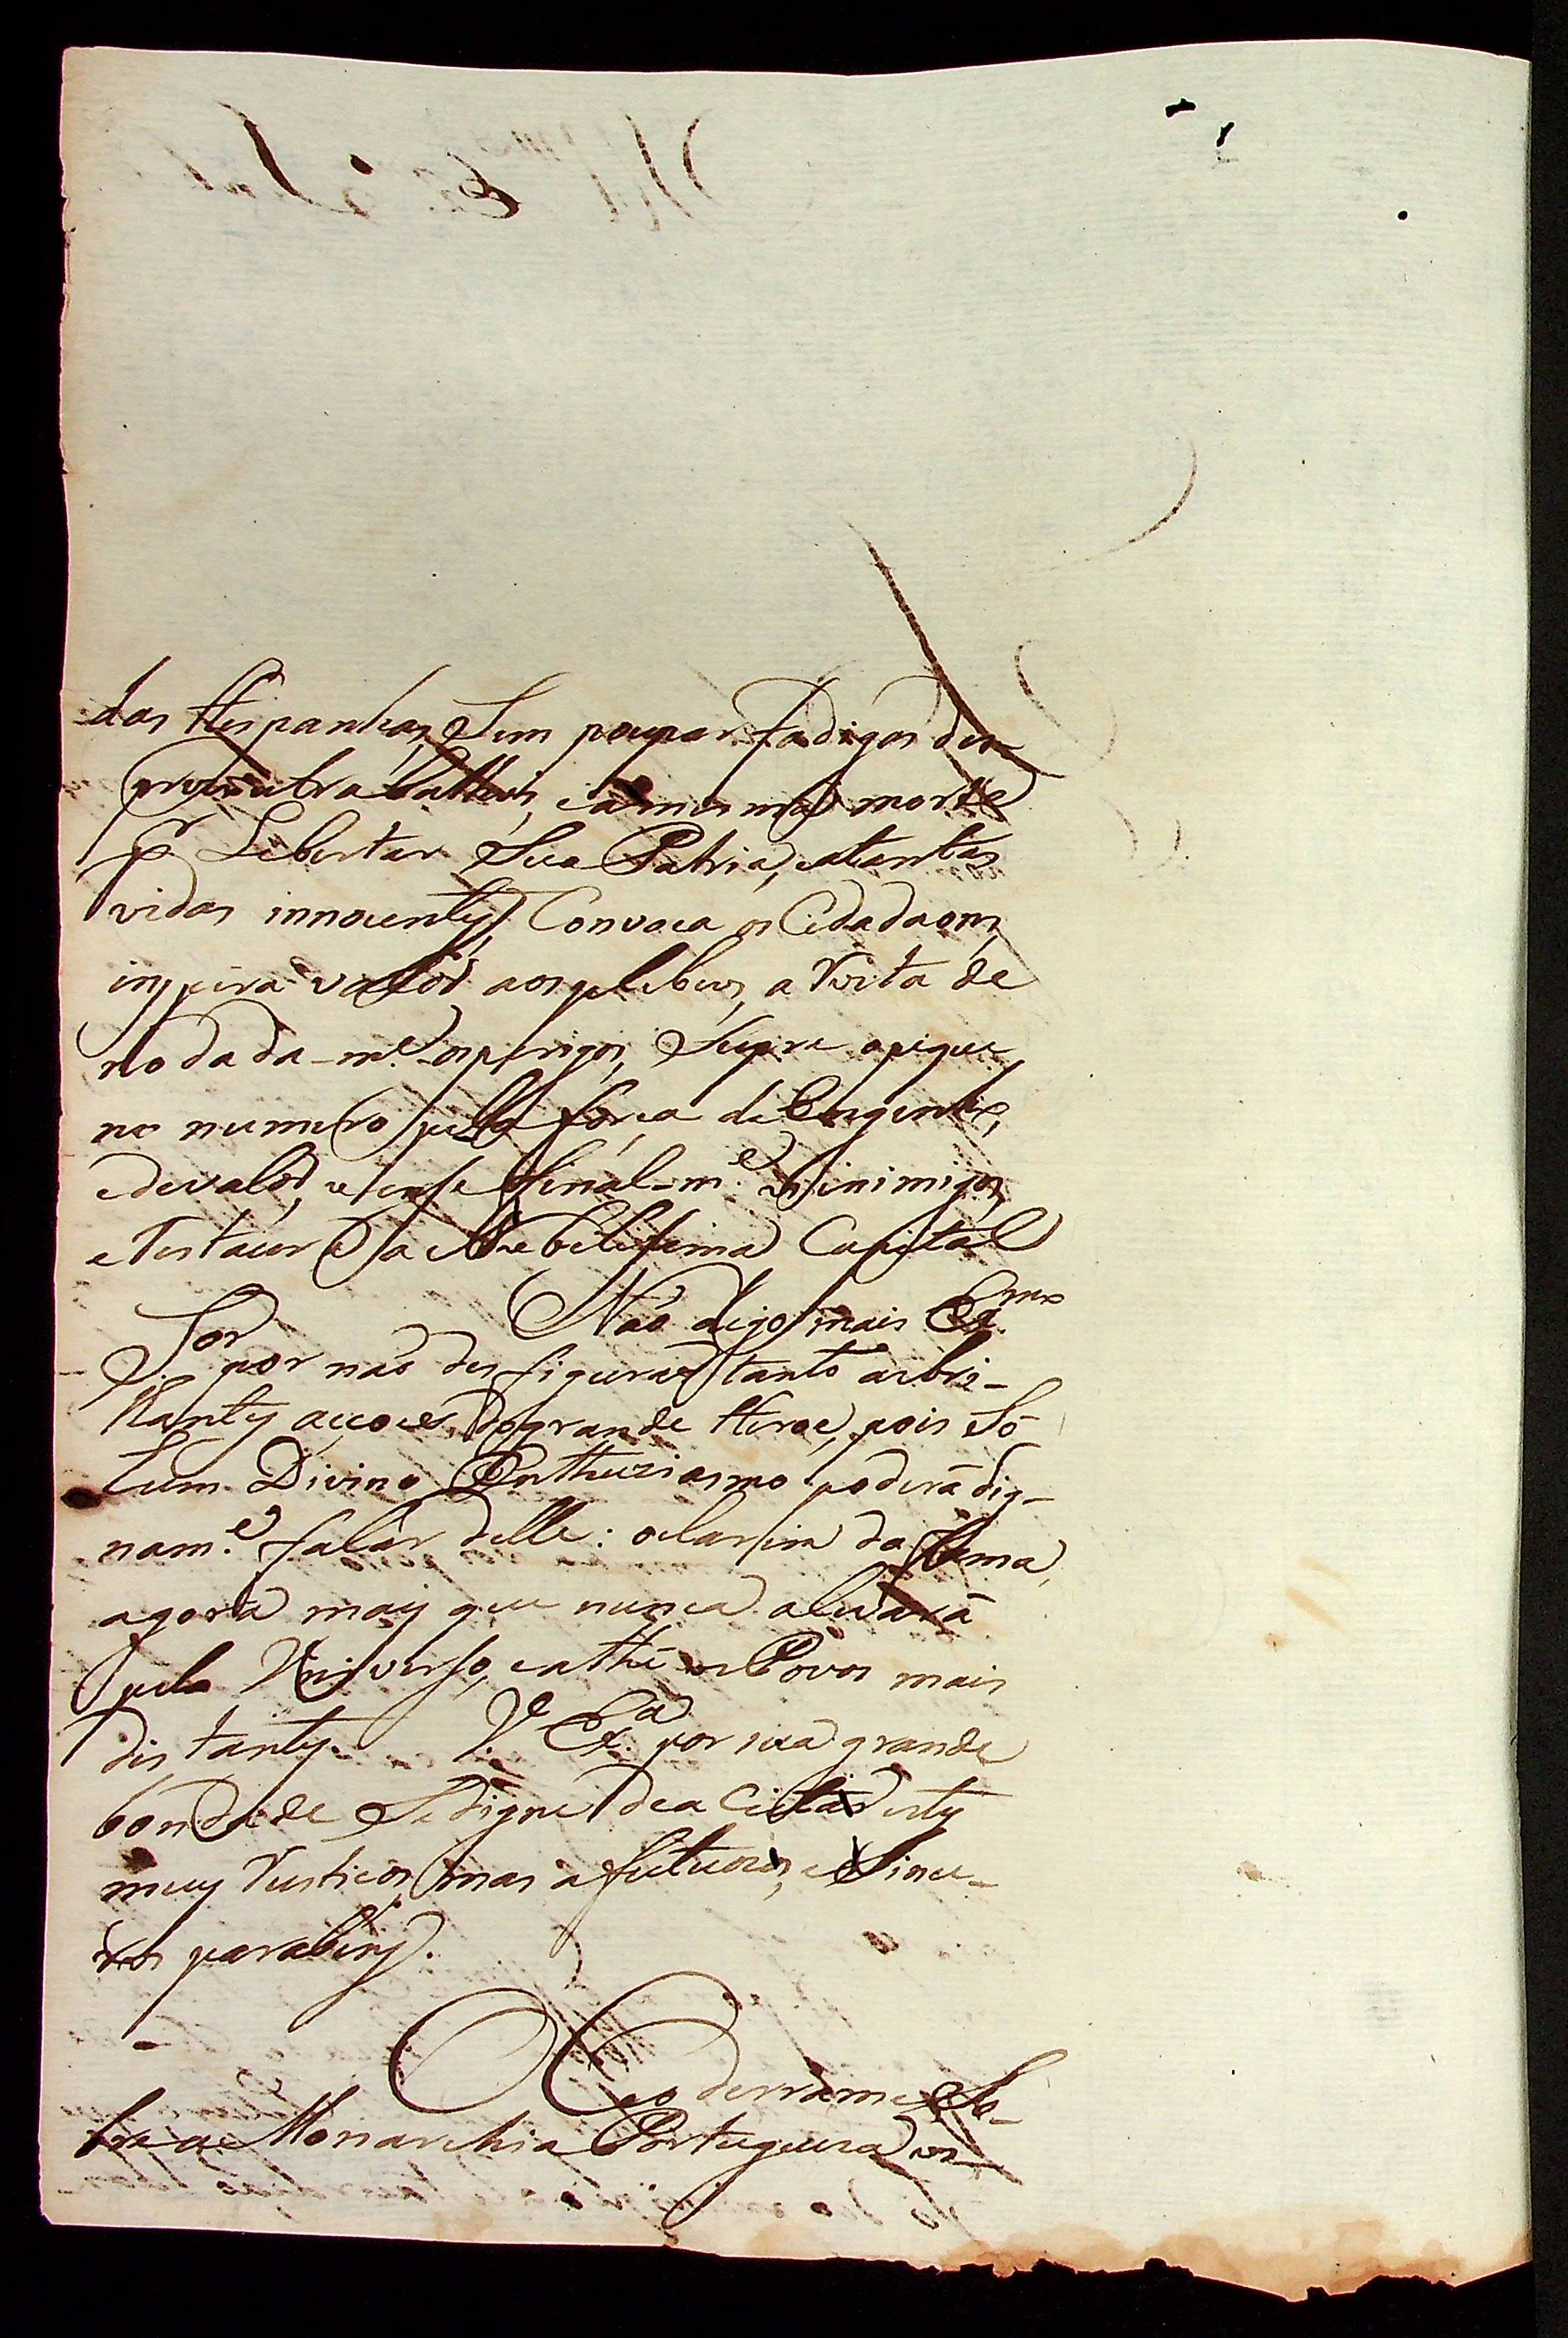 das Hespanhas, Sem poupar fadigas des-
preza trabalhos, e a mesma morte
pª Libertar Sua Patria, e tantas
vidas innocentes, Convoca os Cidadaons,
inspira valôr aos plebeus, arrosta de
nodada-m.e os perigos, Supre o peque-
no numero pella força de Engenho,
e de valôr, vense final-m.e os inimigos,
e restaura a Nobilissima Capital
Naõ digo mais Ex.mo
Sor por naõ desfigurar tanto as bri-
lhantes acçoes do grande Heroe, pois Só
hum Divino Enthuziasmo poderá dig-
nam.e falar delle: o clarim da fama,
agora mais que nunca o levará
pelo Universo, e athé os Povos mais
distantes. V. Ex.a por sua grande
bondade Se digne de aceitar estes
meus rusticos, mas afetuosos, e Since-
ros parabens.
O Ceo derrame So-
bre a Monarchia Portugueza os